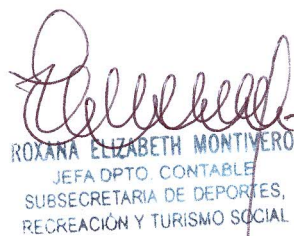 ROXANA ELIZABETH MONTIVERO
JEFA DPTO. CONTABLE
SUBSECRETARIA DE DEPORTES,
RECREACIÓN Y TURISMO SOCIAL